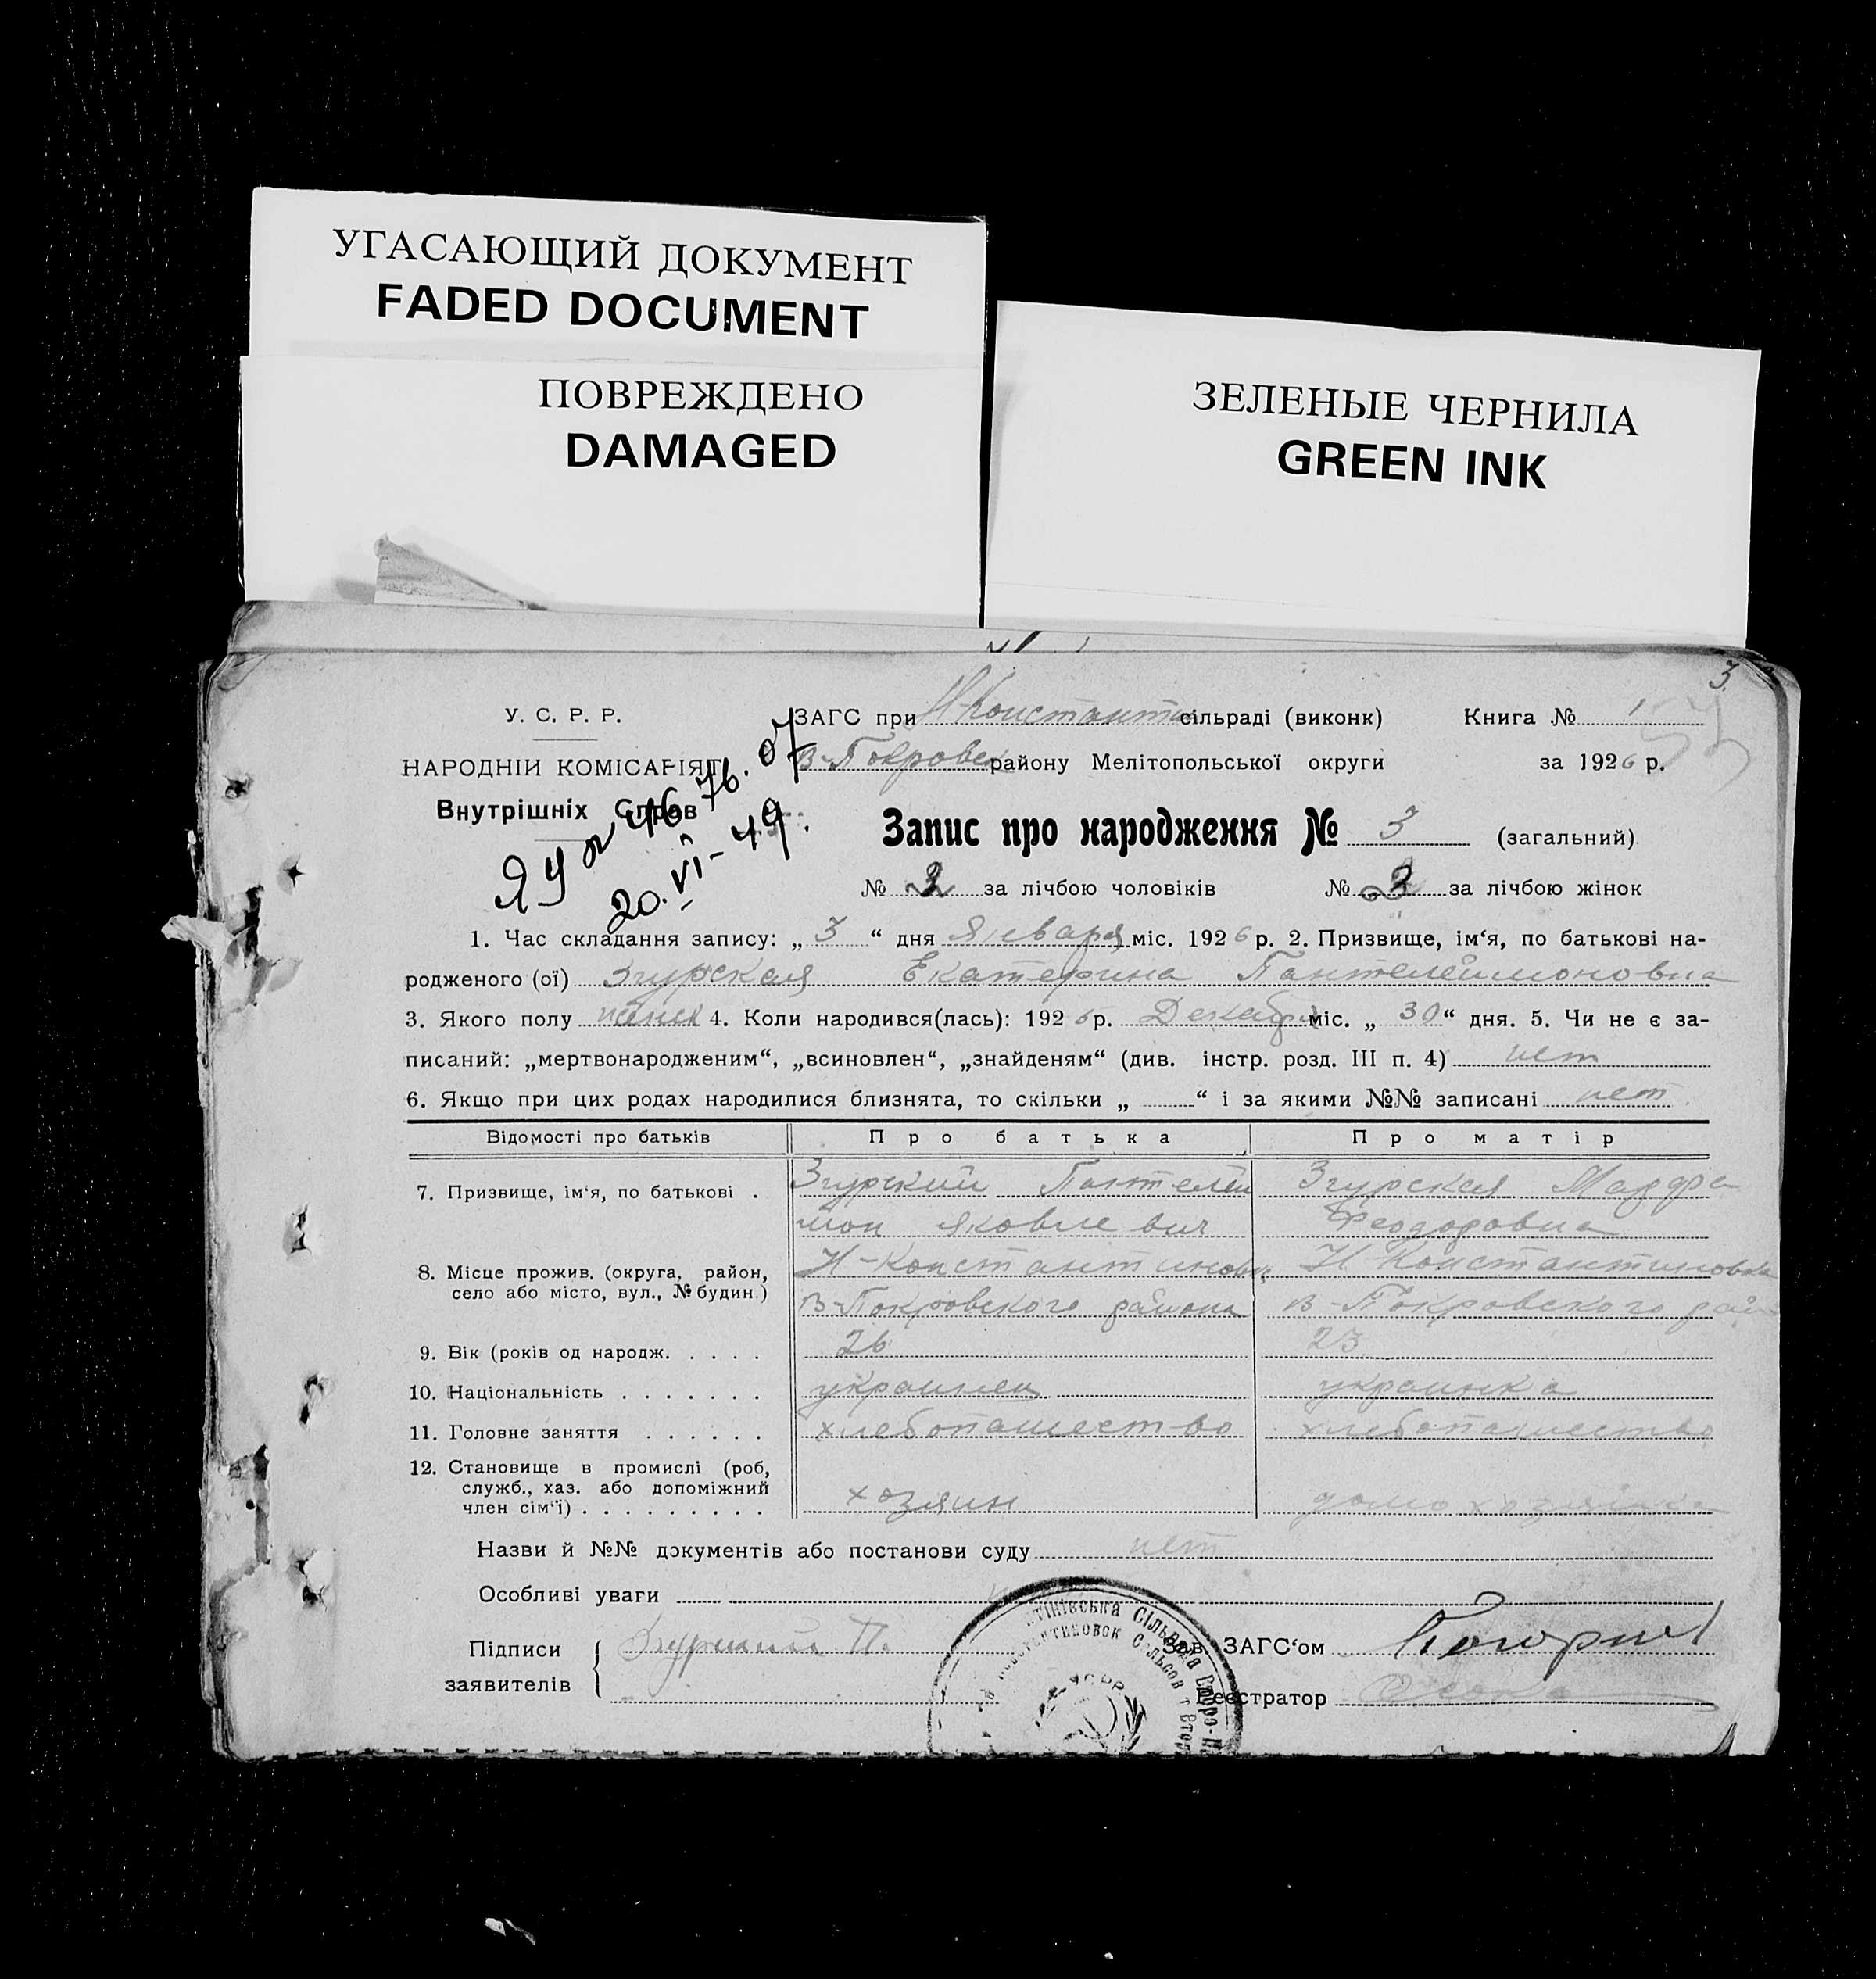 УГАСАЮЩИЙ ДОКУМЕНТ
FADED DOCUMENT
ПОВРЕЖДЕНО
DAMAGED
ЗЕЛЕНЫЕ ЧЕРНИЛА
GREEN INK
3
У. С. Р. Р.
НАРОДНІЙ КОМІСАРІЯТ
Внутрішніх Справ
20. VI - 49.
ЗАГС при Н-Константи сільраді (виконк) Книга № 1
В-Покровск району Мелітопольської округи за 1926 р.
Запис про народження № 3 (загальний)
№ за лічбою чоловіків № 2 за лічбою жінок
1. Час складання запису: „ 3 “ дня Января міс. 1926 р. 2. Призвище, ім‘я, по батькові на-
родженого (ої) Згурская Екатерина Пантелеймоновна
3. Якого полу женск 4. Коли народився(лась): 192 р. Декабря міс. „ 30 “ дня. 5. Чи не є за-
писаний: „мертвонародженим“, „всиновлен“, „знайденям“ (див. інстр. розд. III п. 4) нет
6. Якщо при цих родах народилися близнята, то скільки „ “ і за якими №№ записані нет
Відомості про батьків Про батька Про матір
7. Призвище, ім‘я, по батькові . Згурский Пантелей Згурская
мон Яковлевич Феодоровна
8. Місце прожив. (округа, район, Н-Константиновка Н Константиновка
село або місто, вул., № будин.) В-Покровского района В-Покровского рай
9. Вік (років од народж. . . . . 26 23
10. Національність . . . . . . . украинец украинка
11. Головне заняття . . . . . . хлебопашество хлебопашество
12. Становище в промислі (роб,
служб., хаз. або допоміжний
член сім‘ї) . . . . . . . . . хозяин домохозяйка
Назви й №№ документів або постанови суду нет
Особливі уваги
Підписи Згурский П. Зав. ЗАГС‘ом
заявителів Реєстратор
УСРР